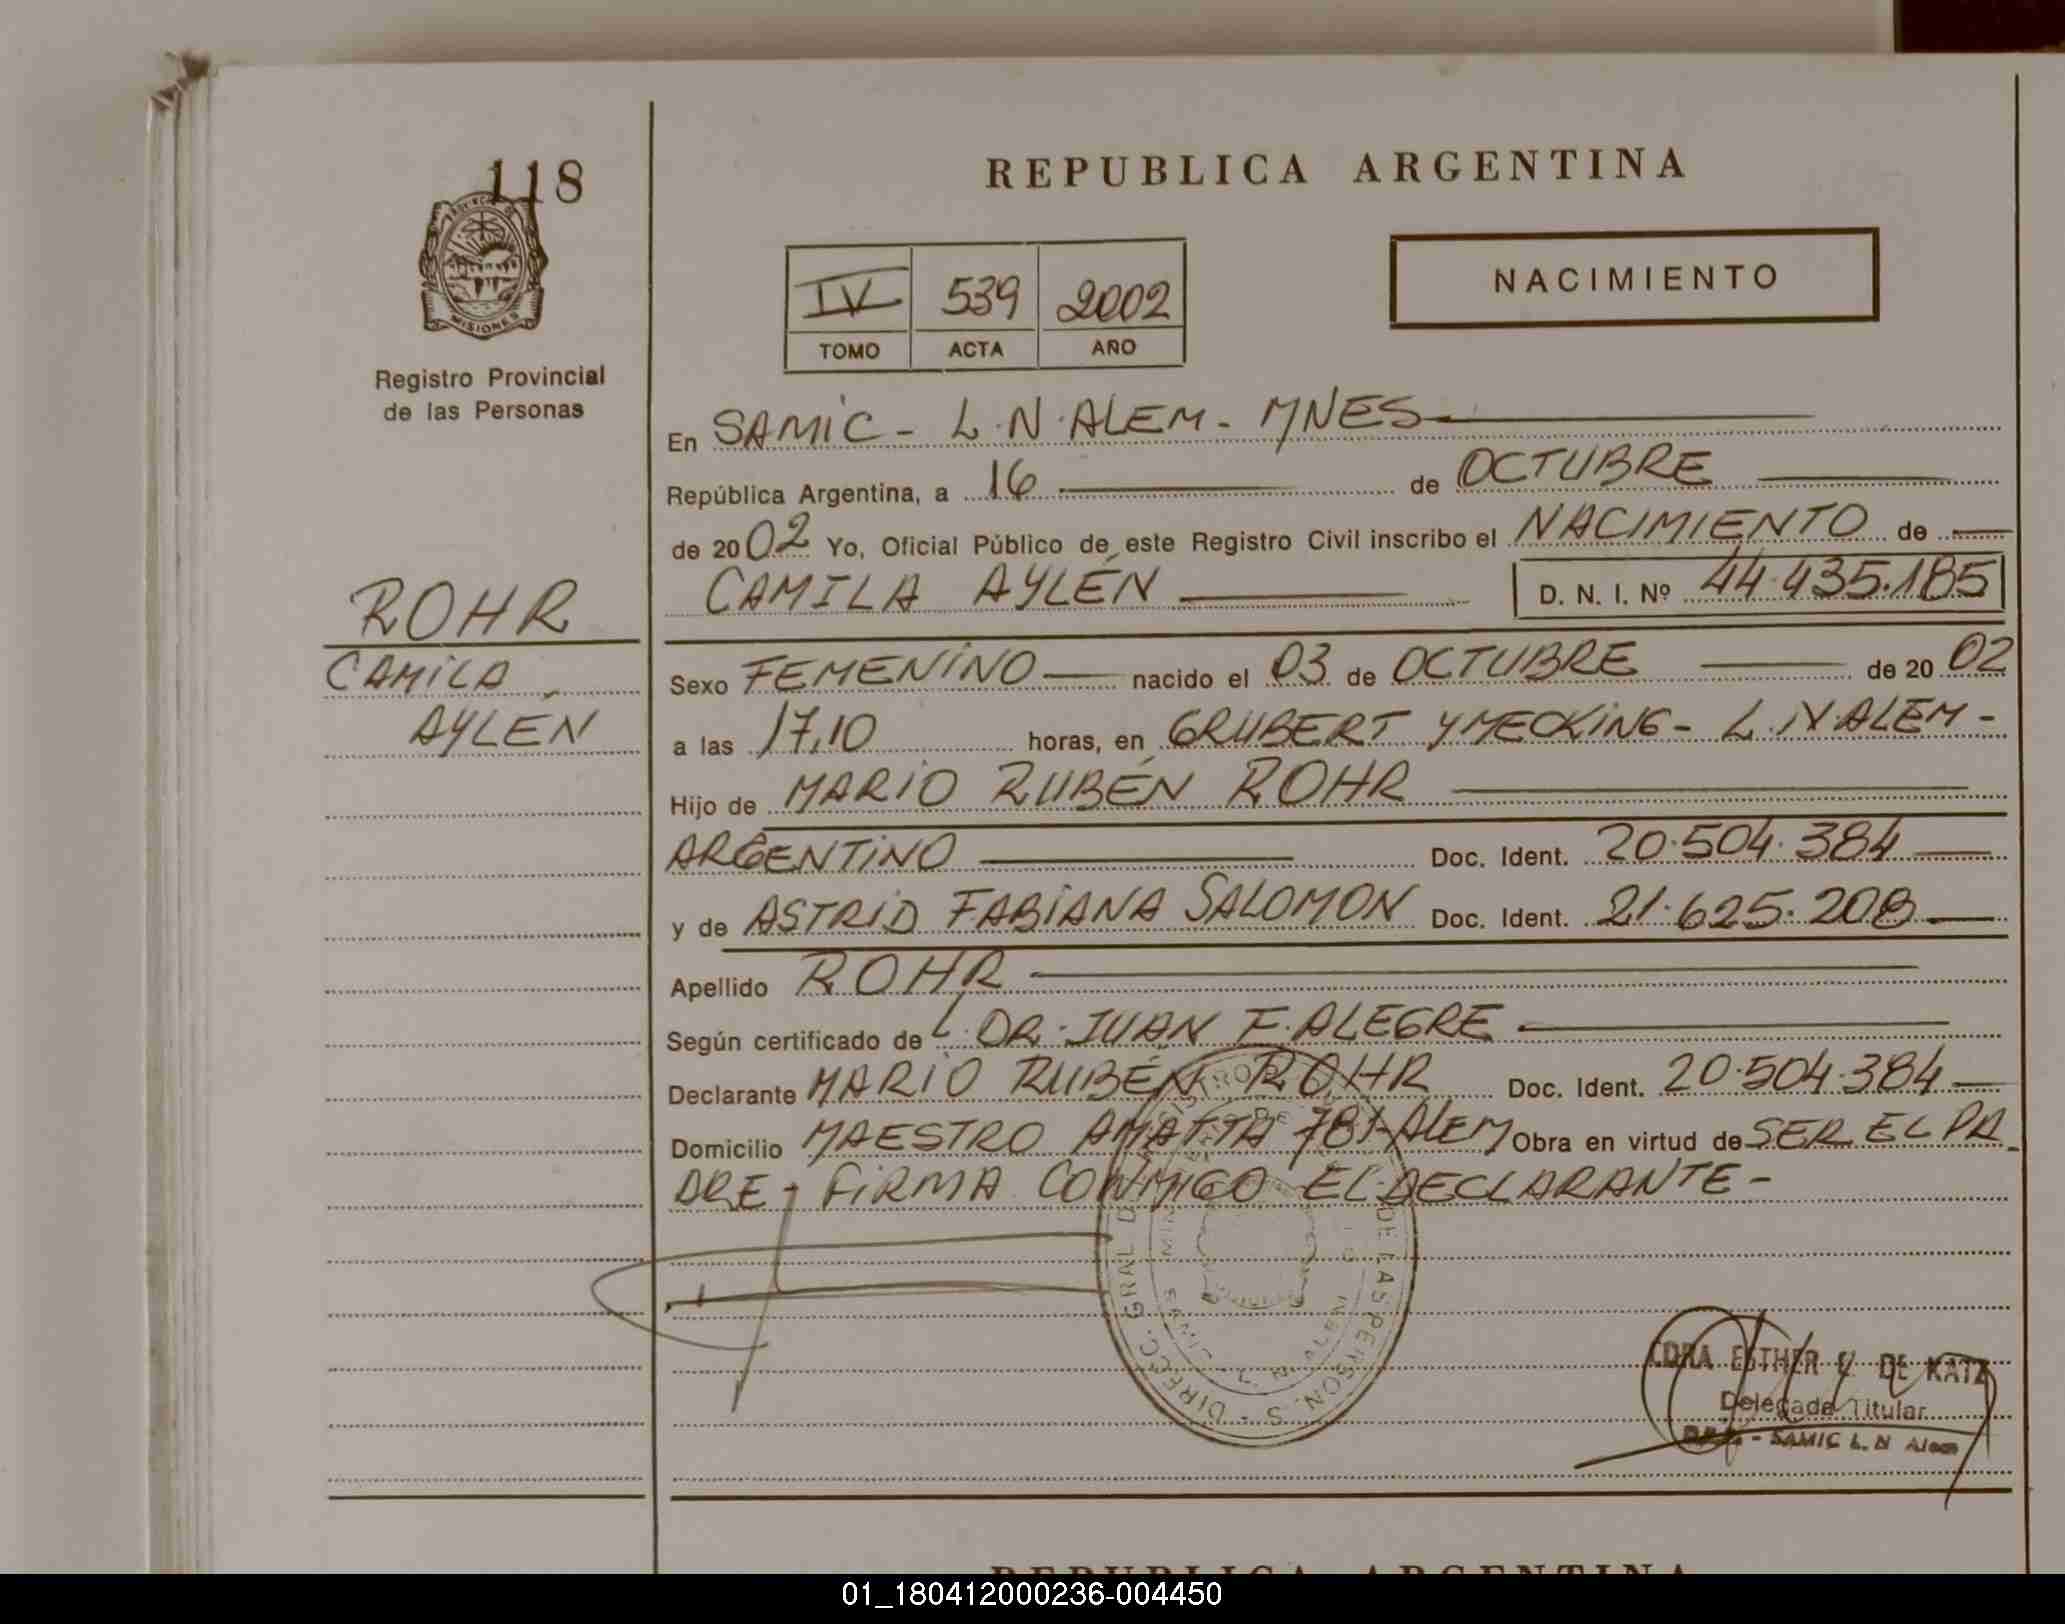 118
REPUBLICA ARGENTINA
NACIMIENTO
IV 539 2002
TOMO ACTA AÑO
MISIONES
Registro Provincial
de las Personas
En SAMIC - L.N.ALEM - MNES
República Argentina, a 16 de OCTUBRE
de 2002 Yo, Oficial Público de este Registro Civil inscribo el NACIMIENTO de
CAMILA AYLÉN D. N. I. Nº 44.435.185
ROHR
CAMILA
AYLÉN
Sexo FEMENINO nacido el 03 de OCTUBRE de 2002
a las 17,10 horas, en GRUBERT Y MECKING - L.N.ALEM -
Hijo de MARIO RUBÉN ROHR
ARGENTINO Doc. Ident. 20.504.384
y de ASTRID FABIANA SALOMON Doc. Ident. 21.625.208
Apellido ROHR
Según certificado de DR. JUAN F. ALEGRE
Declarante MARIO RUBÉN ROHR Doc. Ident. 20.504.384
Domicilio MAESTRO AMATTA 781-ALEM Obra en virtud de SER EL PA
DRE - FIRMA CONMIGO EL DECLARANTE -
DIRECC. GRAL DE LAS PERSON S
L. N. ALEM
CDRA ESTHER DE KATZ
Delegada Titular
SAMIC L. N Alem
REPUBLICA ARGENTINA
01_180412000236-004450